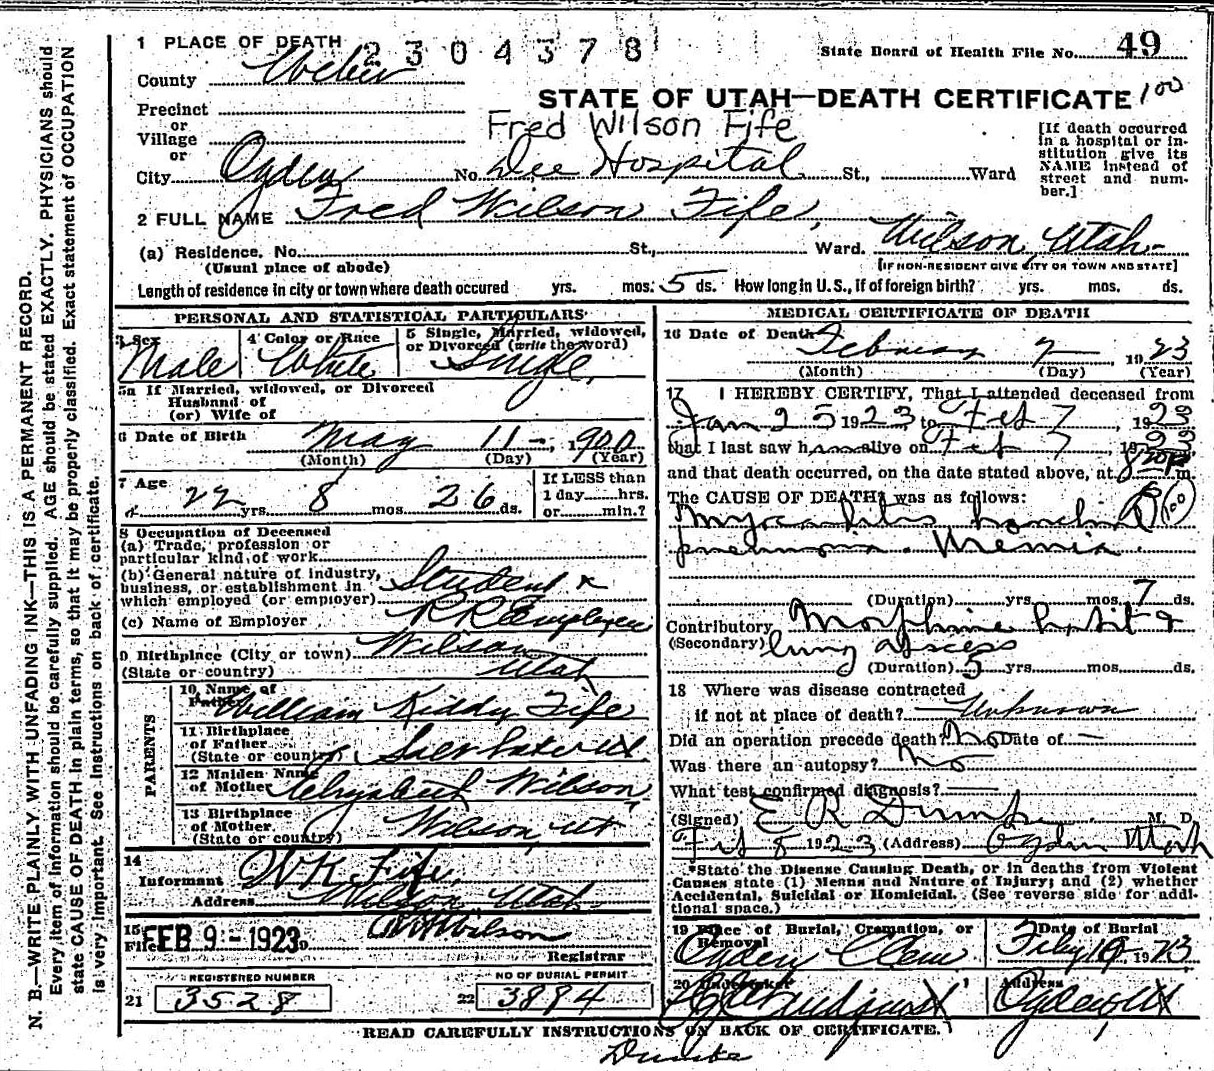 1 PLACE OF DEATH 2304378 State Board of Health File No. 49
County Weber
STATE OF UTAH—DEATH CERTIFICATE 100
Precinct
or
Village
or
Fred Wilson Fife
City Ogden No. Dee Hospital St., Ward
[If death occurred in a hospital or institution give its NAME instead of street and number.]
2 FULL NAME Fred Wilson Fife,
(a) Residence. No. St., Ward. Wilson, Utah
(Usual place of abode) [IF NON-RESIDENT GIVE CITY OR TOWN AND STATE]
Length of residence in city or town where death occured yrs. mos. 5 ds. How long in U.S., if of foreign birth? yrs. mos. ds.
PERSONAL AND STATISTICAL PARTICULARS
3 Sex Male
4 Color or Race White
5 Single, Married, widowed, or Divorced (write the word) Single
5a If Married, widowed, or Divorced
Husband of
(or) Wife of
6 Date of Birth May 11 1900
(Month) (Day) (Year)
7 Age 22 yrs. 8 mos 26 ds.
If LESS than
1 day hrs.
or min.?
8 Occupation of Deceased
(a) Trade, profession or
particular kind of work
(b) General nature of industry,
business, or establishment in
which employed (or employer) Student
(c) Name of Employer RR Employee
9 Birthplace (City or town) Wilson
(State or country) Utah
PARENTS
10 Name of Father William Kiddy Fife
11 Birthplace
of Father
(State or country)
12 Maiden Name
of Mother Elizabeth Wilson
13 Birthplace
of Mother
(State or country) Wilson, Ut
14
Informant W K Fife,
Address Wilson Utah
15
Filed FEB 9 - 1923
Wilson
Registrar
REGISTERED NUMBER
21 3528
NO OF BURIAL PERMIT
22 3894
MEDICAL CERTIFICATE OF DEATH
16 Date of Death February 7 1923
(Month) (Day) (Year)
17 I HEREBY CERTIFY, That I attended deceased from
Jan 25 1923 to Feb 7, 1923
that I last saw him alive on Feb 7, 1923
and that death occurred, on the date stated above, at m.
The CAUSE OF DEATH* was as follows:
Myocarditis bronchial
pneumonia. Uremia
(Duration) yrs. mos. 7 ds.
Contributory Morphine habit &
(Secondary) lung abscess
(Duration) 3 yrs. mos. ds.
18 Where was disease contracted
if not at place of death? Unknown
Did an operation precede death? No Date of —
Was there an autopsy? No
What test confirmed diagnosis? ——
(Signed) E R Dumke M. D.
Feb 8 1923 (Address) Ogden Utah
*State the Disease Causing Death, or in deaths from Violent
Causes state (1) Means and Nature of Injury; and (2) whether
Accidental, Suicidal or Homicidal. (See reverse side for additional space.)
19 Place of Burial, Cremation, or
Removal
Ogden Cem
Date of Burial
20 Undertaker
Address
Ogden Ut
READ CAREFULLY INSTRUCTIONS ON BACK OF CERTIFICATE.
Dumke
N. B.—WRITE PLAINLY, WITH UNFADING INK—THIS IS A PERMANENT RECORD.
Every item of information should be carefully supplied. AGE should be stated EXACTLY. PHYSICIANS should
state CAUSE OF DEATH in plain terms, so that it may be properly classified. Exact statement of OCCUPATION
is very important. See Instructions on back of certificate.